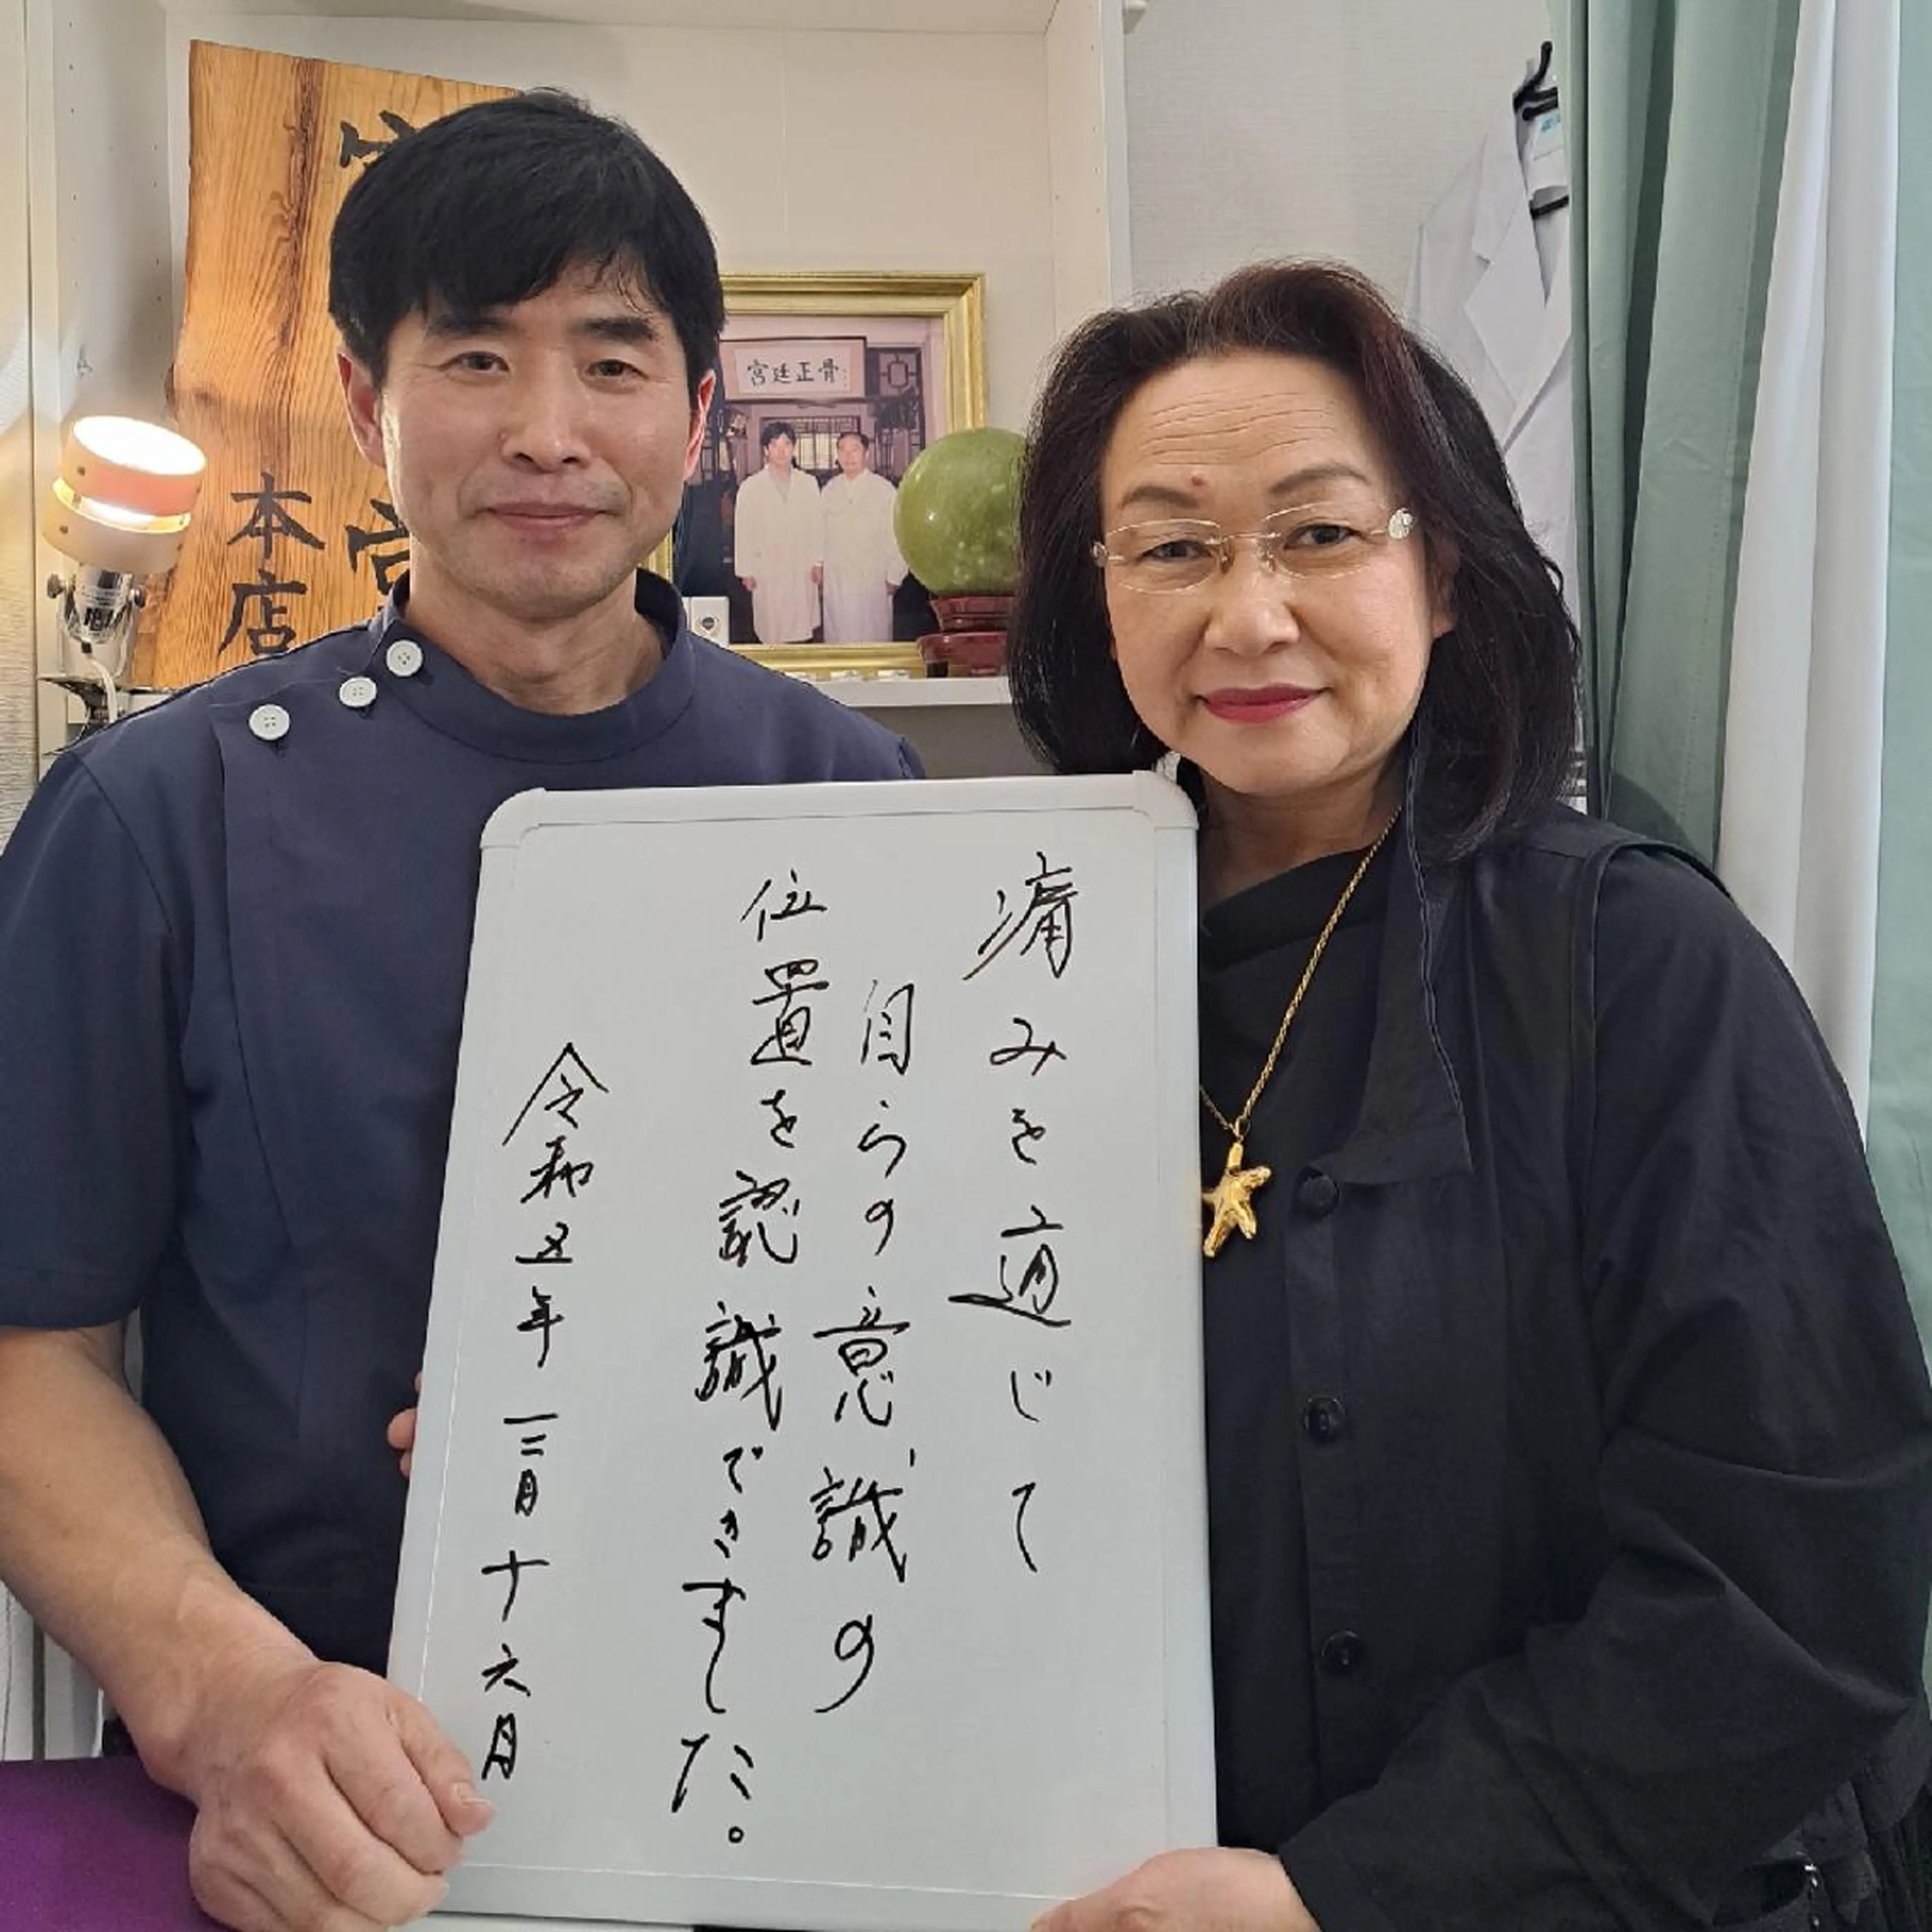 痛みを通じて
自らの意識の
位置を認識できました。
令和五年三月十六月
宮廷正骨
本店